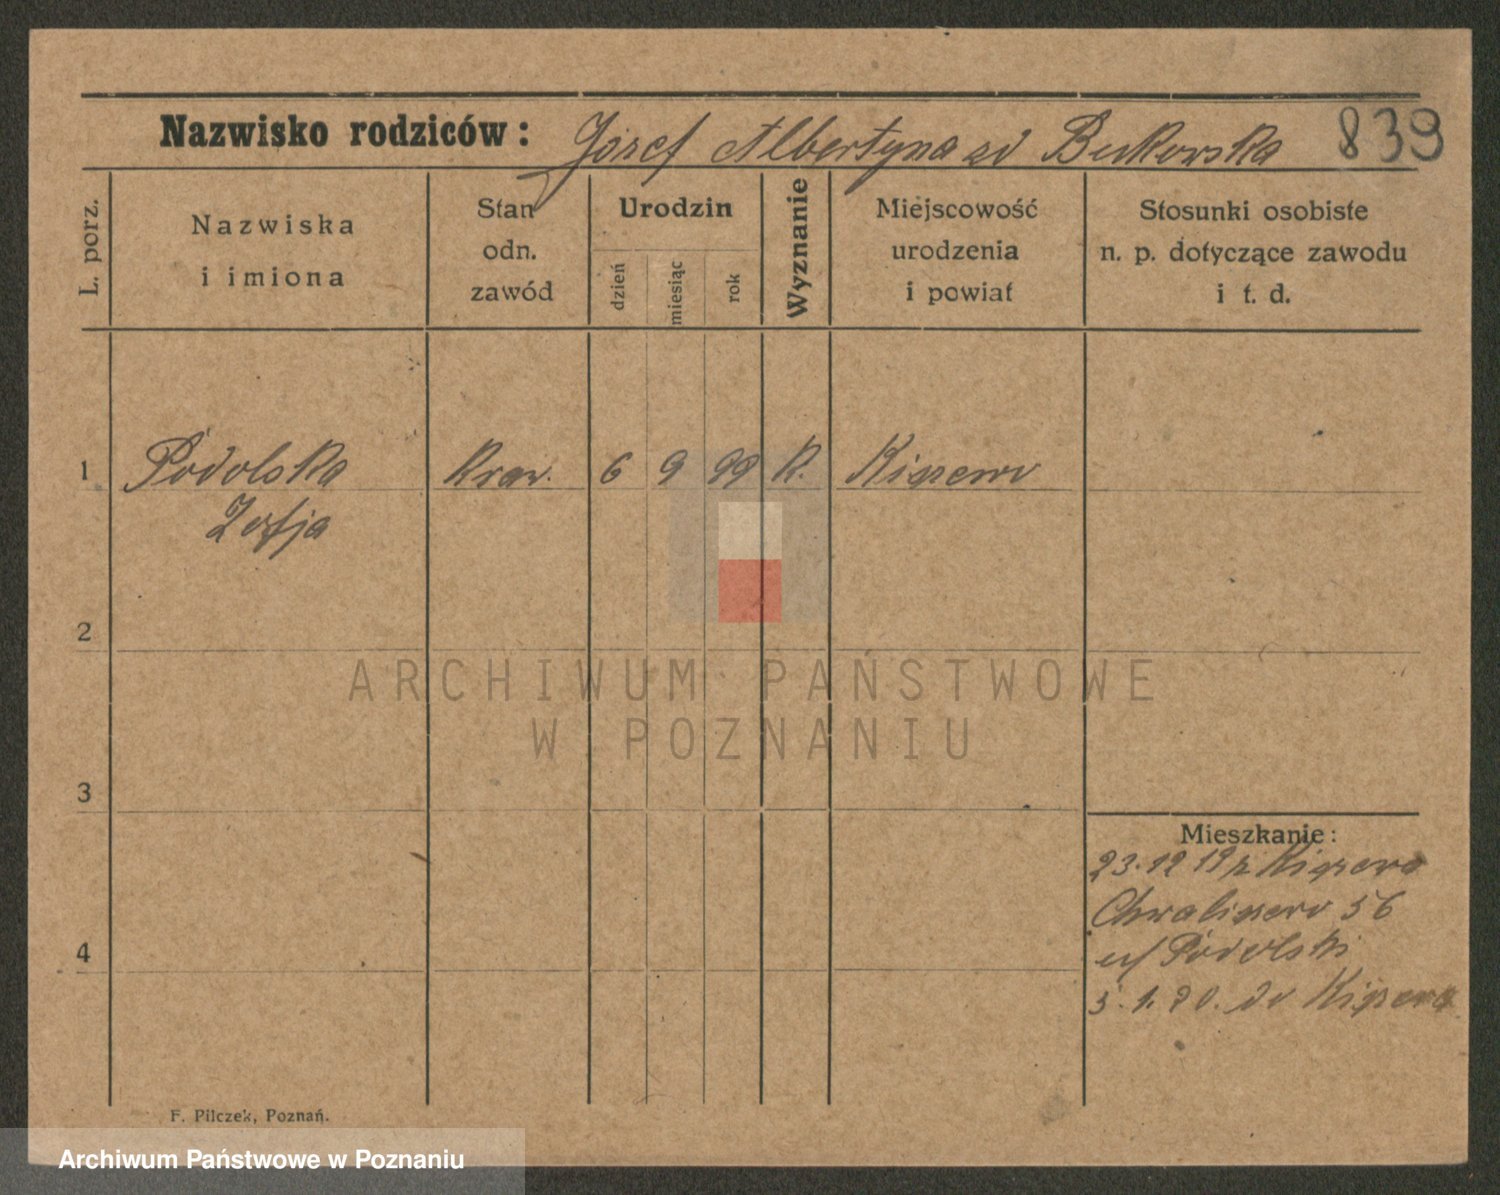 839
Nazwisko rodziców: Józef Albertyna zd Bukowska
L. porz.
Nazwiska
i imiona
Stan
odn.
zawód
Urodzin
dzień
miesiąc
rok
Wyznanie
Miejscowość
urodzenia
i powiat
Stosunki osobiste
n. p. dotyczące zawodu
i t. d.
1 Podolska Kraw. 6 9 99 k.
Zofja
2
3
4
Mieszkanie:
23.12 19 z
56
Podolski
5.1.20. do
F. Pilczek, Poznań.
ARCHIWUM PAŃSTWOWE
W POZNANIU
Archiwum Państwowe w Poznaniu